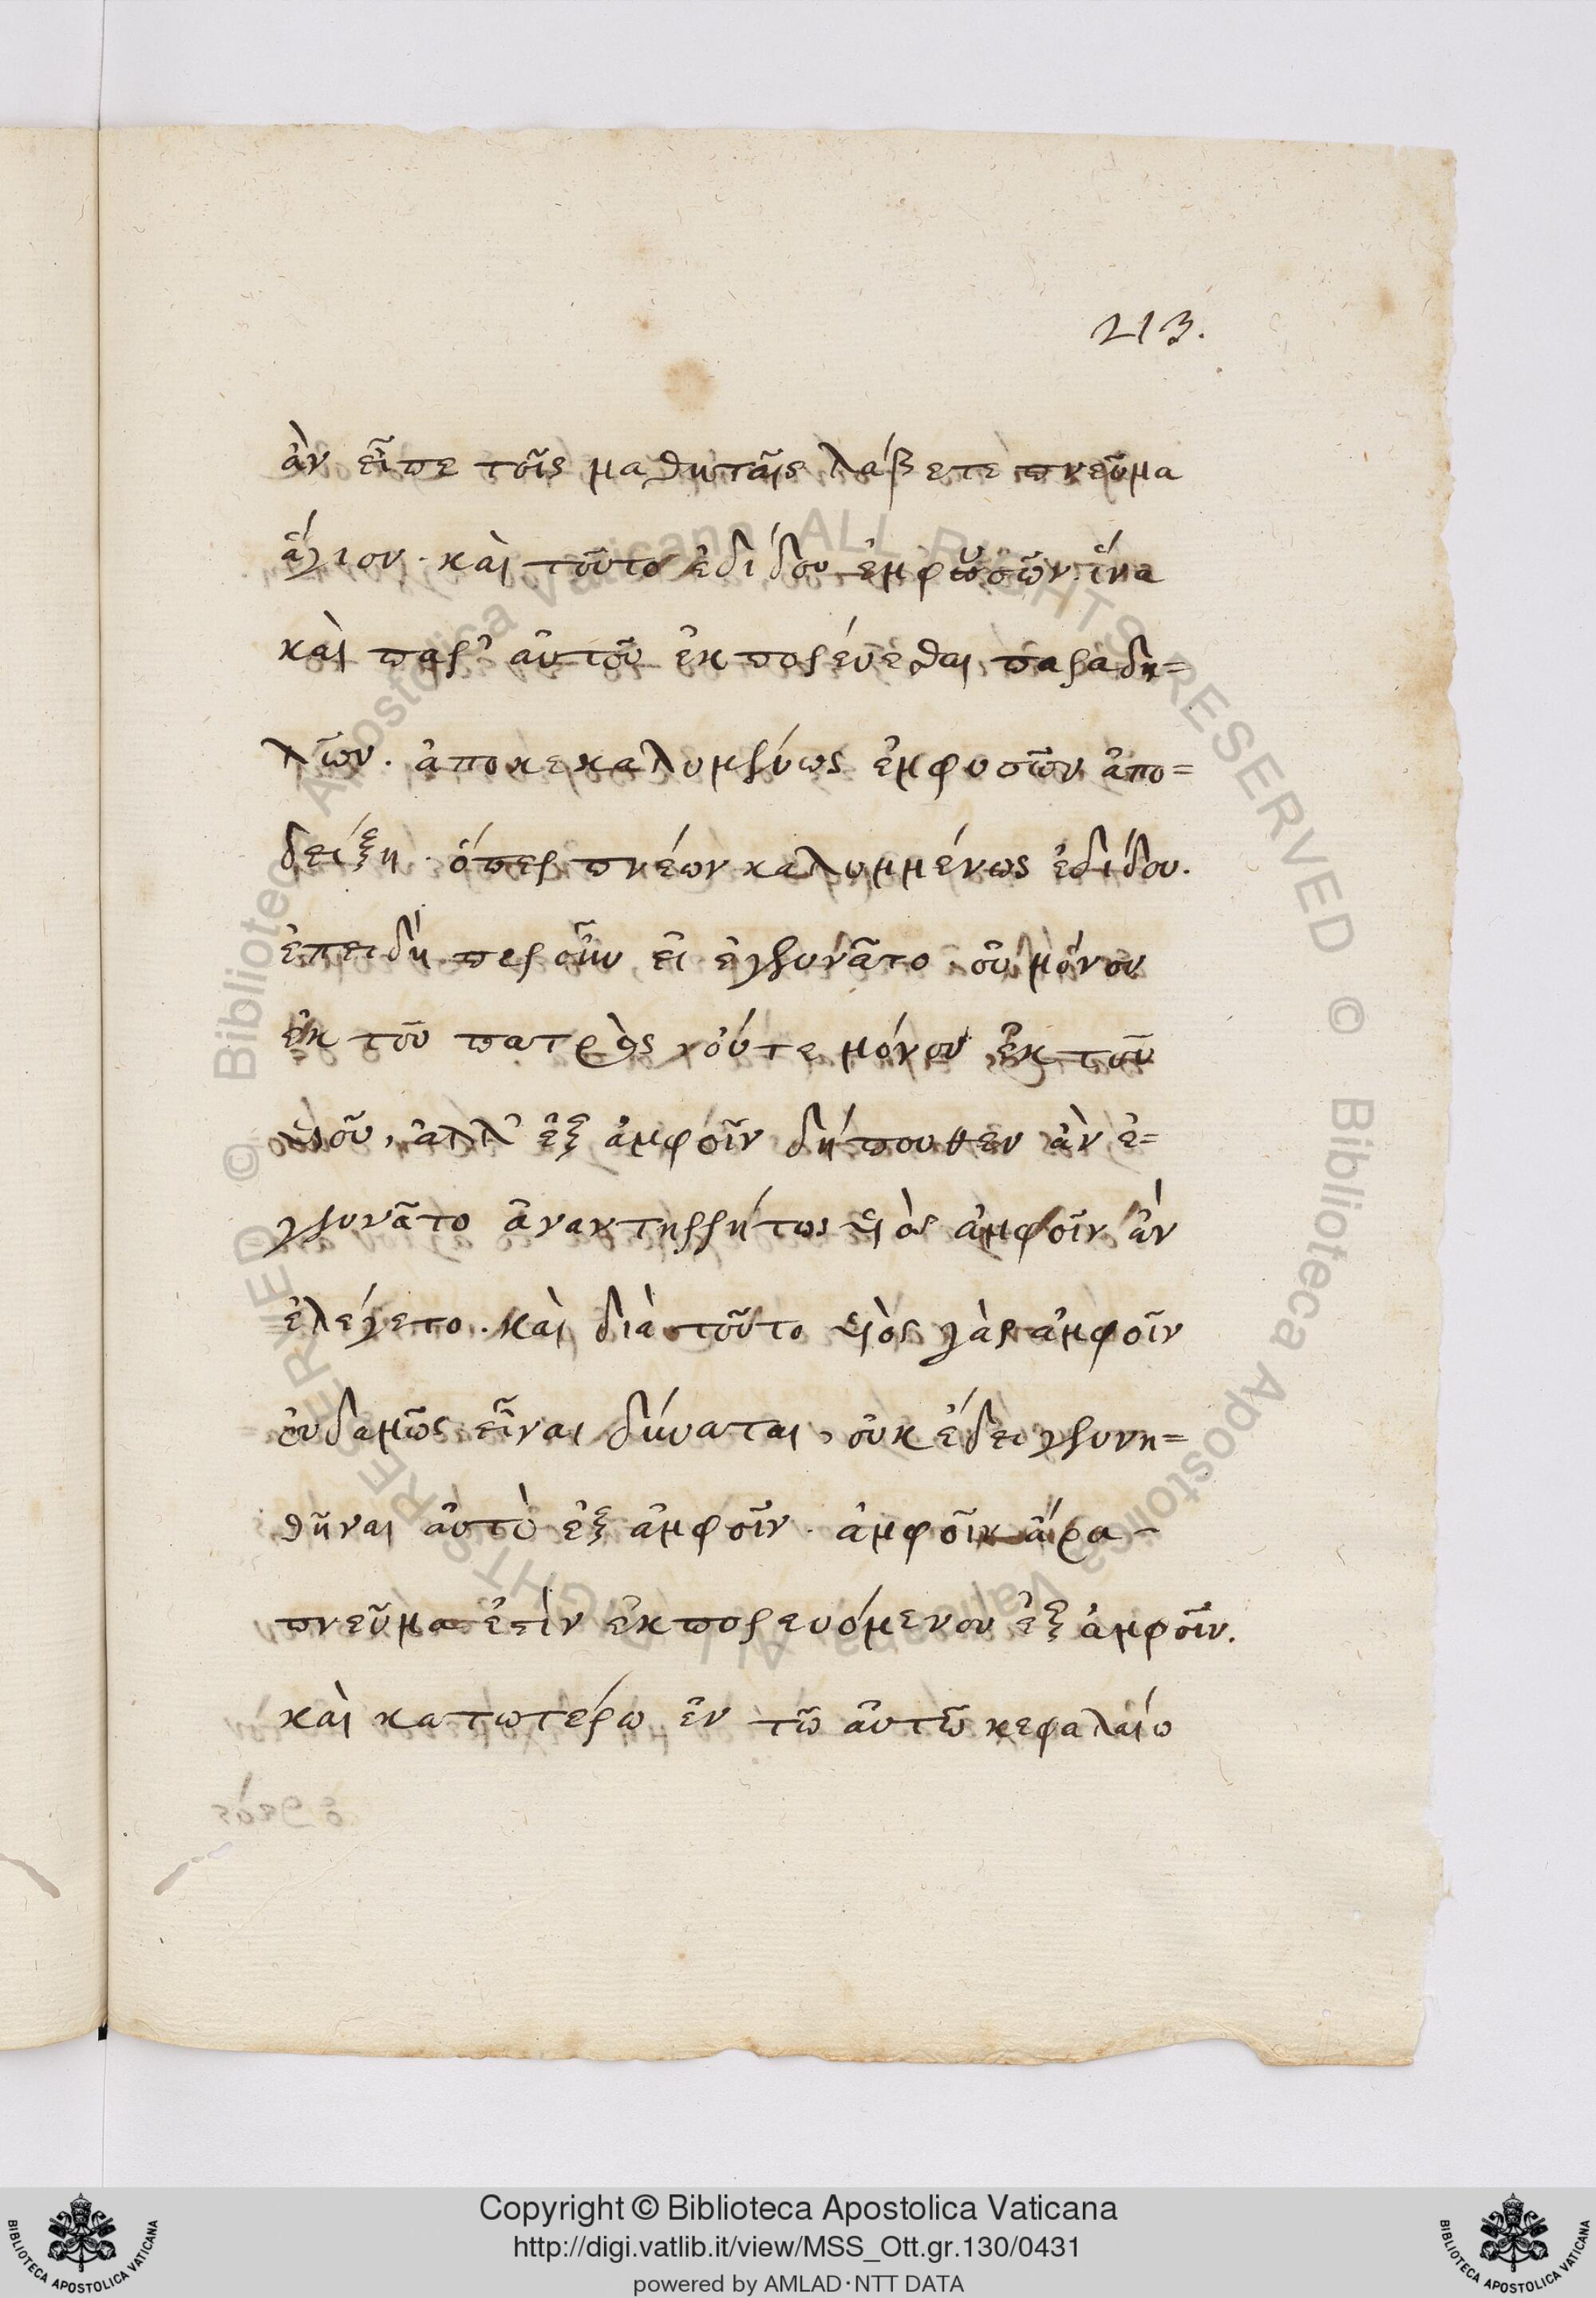 213.
ἂν εἶπε τοῖς μαθηταῖς λάβετε πνεῦμα
ἅγιον. καὶ τοῦτο ἐδίδου ἐμφυσῶν. ἵνα
καὶ παρ' αὐτοῦ ἐκπορεύεσθαι παραδη=
λῶν. ἀποκεκαλυμμένως ἐμφυσῶν ἀπο=
δείξῃ. ὅπερ πνέων καλυμμένως ἐδίδου.
ἐπειδή περ οὖν εἰ ἐγεννᾶτο. οὐ μόνου
ἐκ τοῦ πατρὸς, οὔτε μόνου ἐκ τοῦ
υἱοῦ, ἀλλ' ἐξ ἀμφοῖν δήπουθεν ἂν ἐ=
γεννᾶτο ἀναντηρρήτως υἱὸς ἀμφοῖν ἂν
ἐλέγετο. καὶ διὰ τοῦτο υἱὸς γὰρ ἀμφοῖν
οὐδαμῶς εἶναι δύναται, οὐκ ἔδει γεννη=
θῆναι αὐτὸ ἐξ ἀμφοῖν. ἀμφοῖν ἄρα
πνεῦμα ἐστὶν ἐκπορευόμενον ἐξ ἀμφοῖν.
καὶ κατωτέρω ἐν τῶ αὐτῶ κεφαλαίω
Copyright © Biblioteca Apostolica Vaticana
http://digi.vatlib.it/view/MSS_Ott.gr.130/0431
powered by AMLAD·NTT DATA
BIBLIOTECA APOSTOLICA VATICANA
BIBLIOTECA APOSTOLICA VATICANA
© Biblioteca Apostolica Vaticana ALL RIGHTS RESERVED © Biblioteca Apostolica Vaticana ALL RIGHTS RESERVED